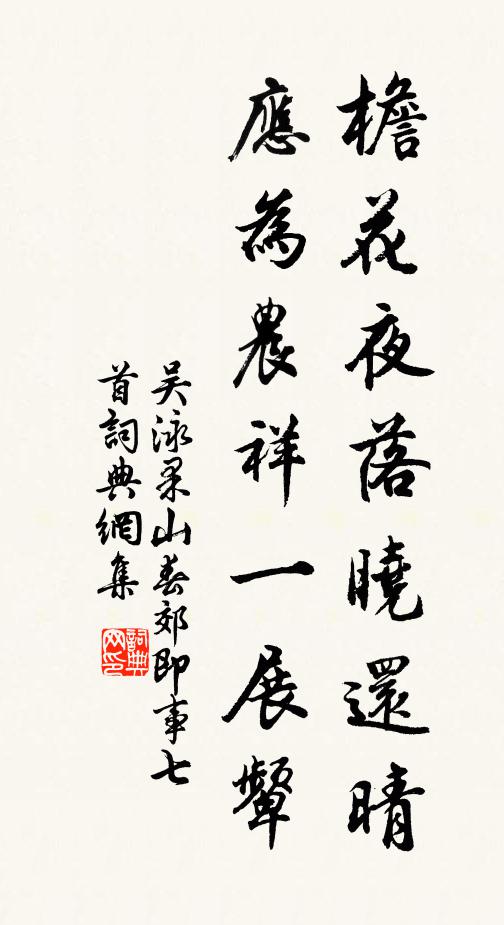 檐花夜落曉還晴
應為農祥一展顰
吳泳果山春郊即事七
首詞典網集
詞典网印